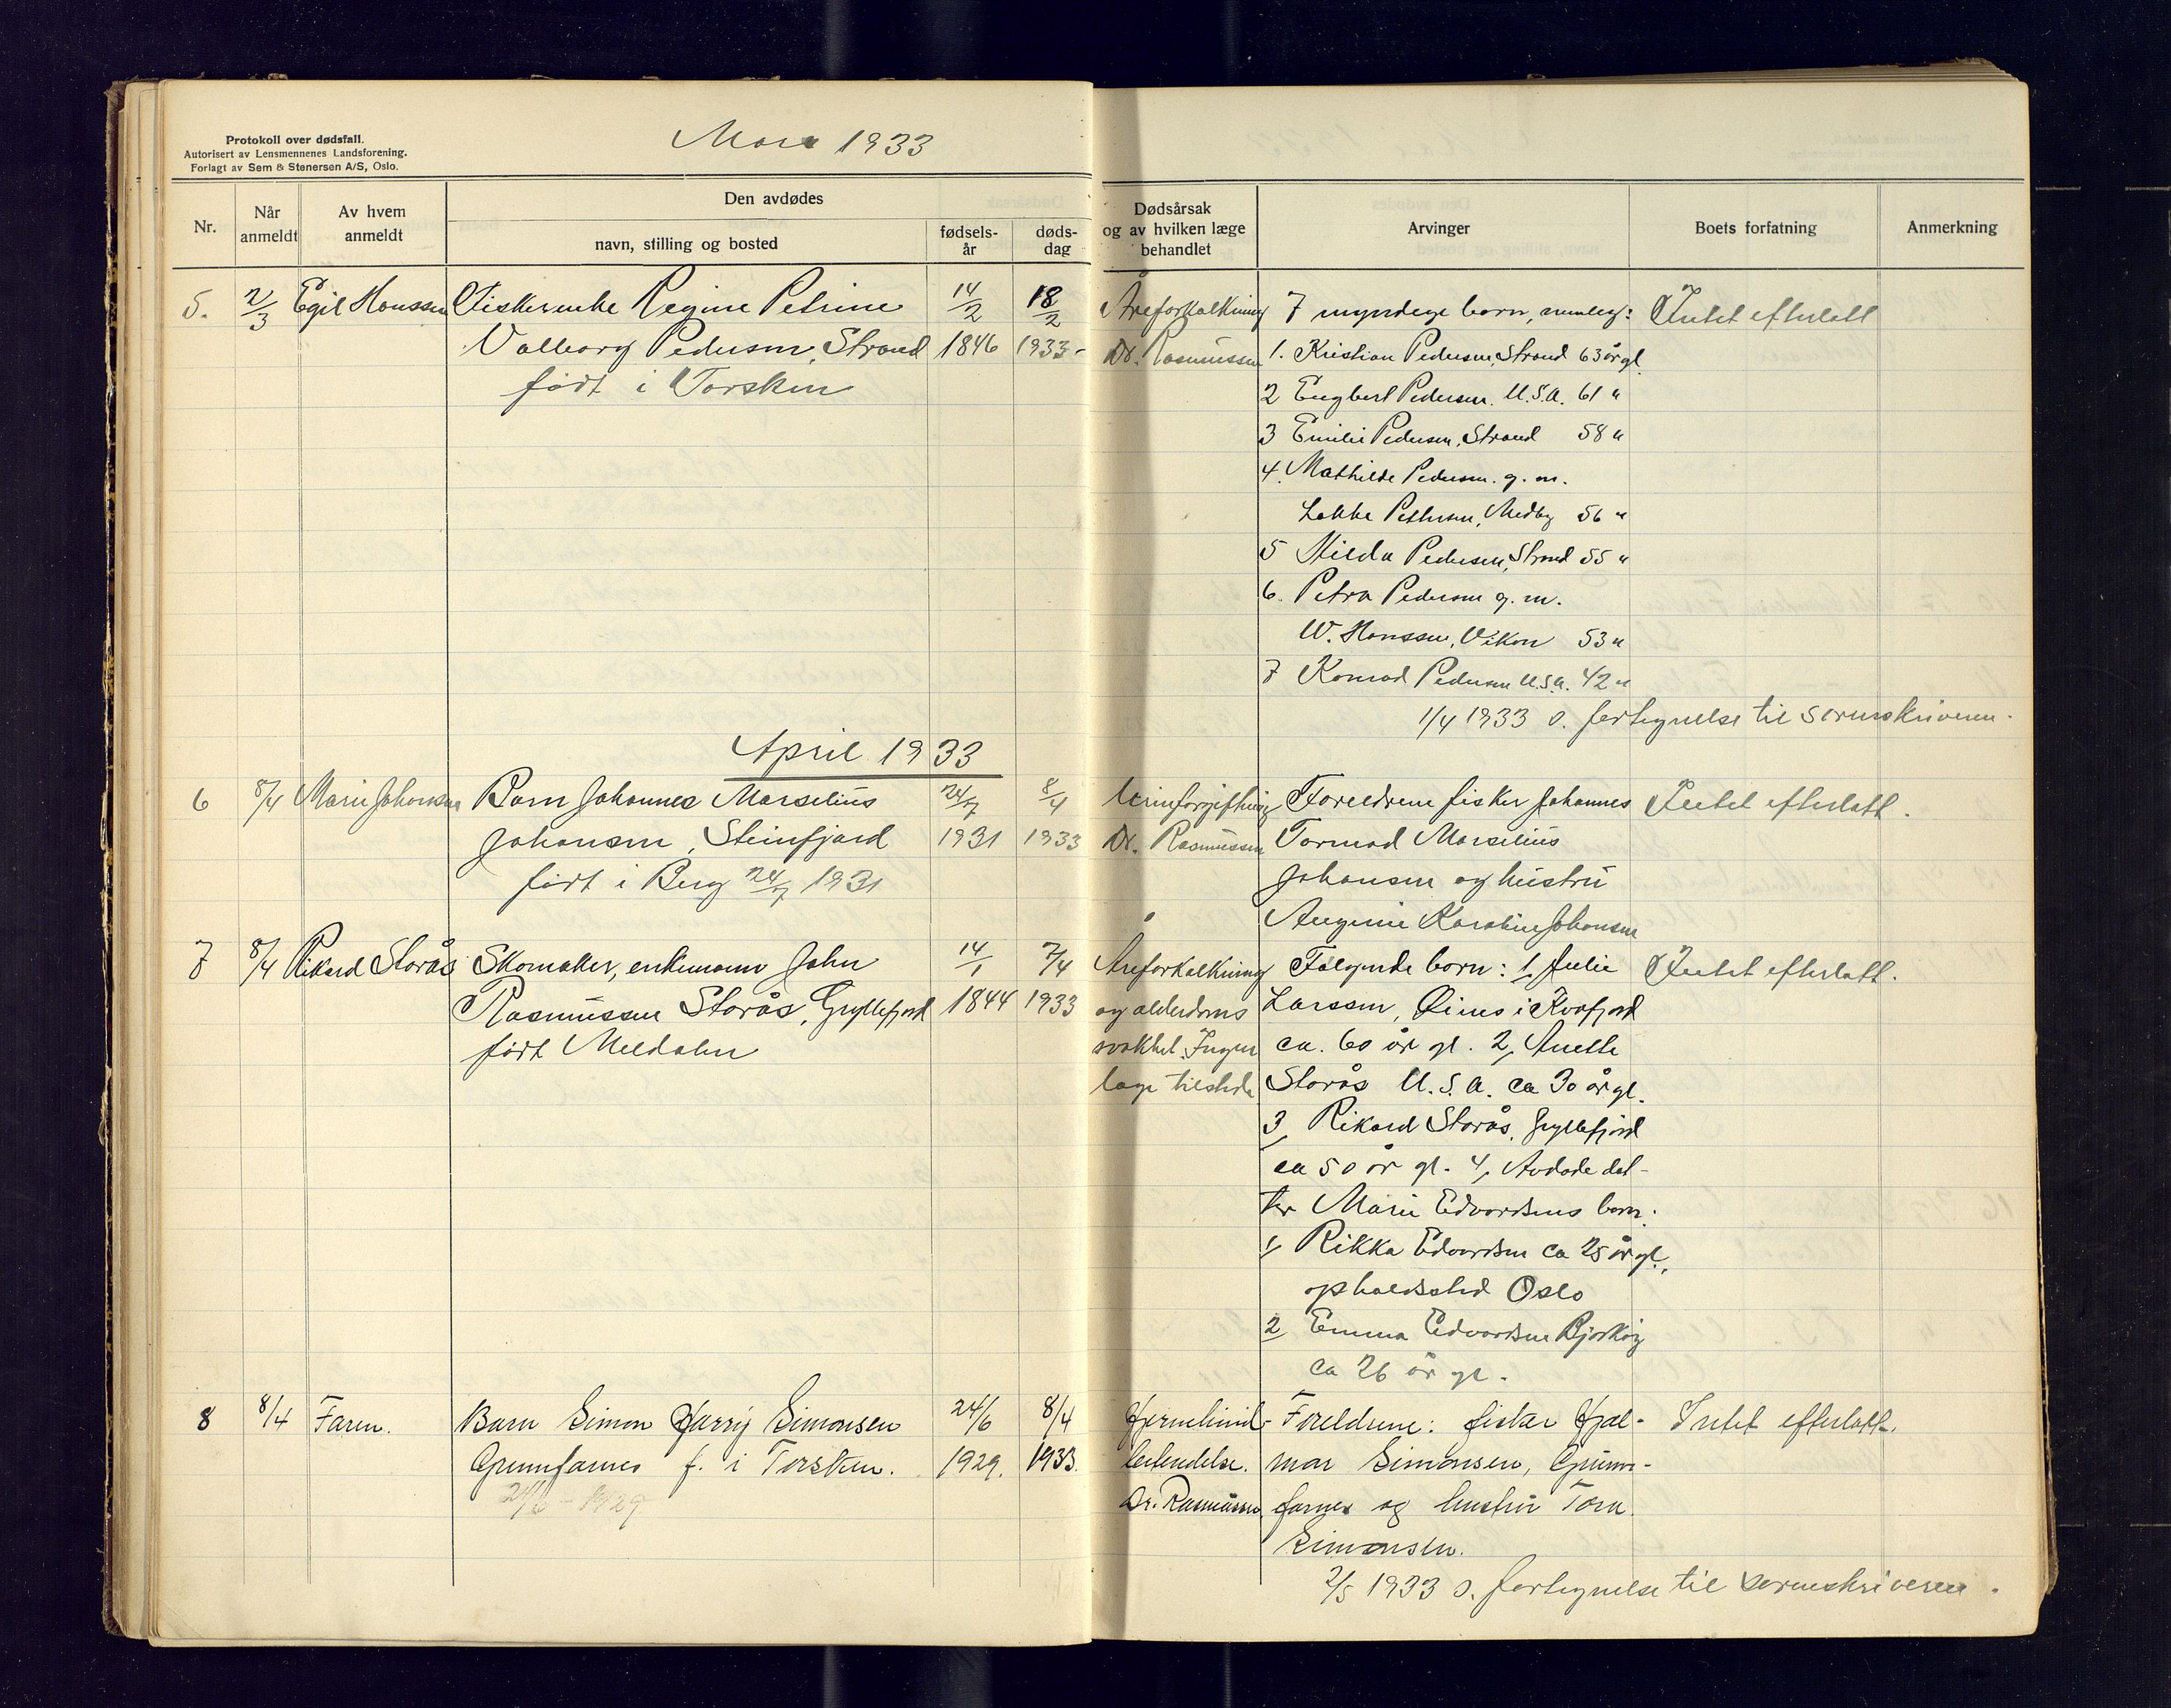 Protokoll over dødsfall.
Autorisert av Lensmennenes Landsforening.
Forlagt av Sem & Stenersen A/S, Oslo.
Mars 1933
Nr.
Når anmeldt
Av hvem anmeldt
Den avdødes
navn, stilling og bosted
fødselsår
dødsdag
Dødsårsak
og av hvilken læge
behandlet
Arvinger
Boets forfatning
Anmerkning
5. 2/3 Egil Hanssen Fiskerenke Regine Petrine 14/2 18/2
Valborg Pedersen, Strand 1846 1933
født i Torsken
Åreforkalkning
Dr. Rasmussen
7 myndige born, nemleg:
1. Kristian Pedersen, Strand 63 år gl.
2 Engbert Pedersen. U.S.A. 61 "
3 Emilie Pedersen, Strand 58 "
4. Mathilde Pedersen. g. m.
Pettersen, Medby 56 "
5 Hilda Pedersen, Strand 55 "
6. Petra Pedersen g. m.
W. Hanssen, Vikan 53 "
7 Konrad Pedersen U.S.A. 42 "
Intet efterlatt
1/4 1933 s. fortegnelse til sorenskriveren.
April 1933
6 8/4 Marie Johansen Barn Johannes Marselius 24/7 8/4
Johansen, Steinfjord 1931 1933
født i Berg 24/7 1931
Urinforgiftning
Dr. Rasmussen
Foreldrene fisker Johannes
Tormod Marselius
Johansen og hustru
Karoline Johansen
Intet efterlatt.
7 8/4 Rikard Storås Skomaker, enkemann John 14/1 7/4
Rasmussen Storås, Gryllefjord 1844 1933
født Meldalen
Åreforkalkning
og alderdoms
svakhet. Ingen
læge tilstede
Følgende born: 1, Julie
Larssen, i Kvæfjord
ca. 60 år gl. 2, Anette
Storås U.S.A. ca 30 år gl.
3, Rikard Storås, Gryllefjord
ca 50 år gl. 4, Avdøde dat-
ter Marie Edvardsens born:
1, Rikka Edvardsen ca 25 år gl.,
opholdssted Oslo
2 Emma Edvardsen Bjarkøy
ca 26 år gl.
Intet efterlatt.
8 8/4 Faren. Barn Simon Harry Simonsen 24/6 8/4
Grunnfarnes f. i Torsken. 1929. 1933.
24/6 - 1929
Hjernehind-
betendelse.
Dr. Rasmussen
Foreldrene: fisker Hjal-
mar Simonsen, Grunn-
farnes og hustru Tora
Simonsen.
Intet efterlatt.
2/5 1933 s. fortegnelse til sorenskriveren.